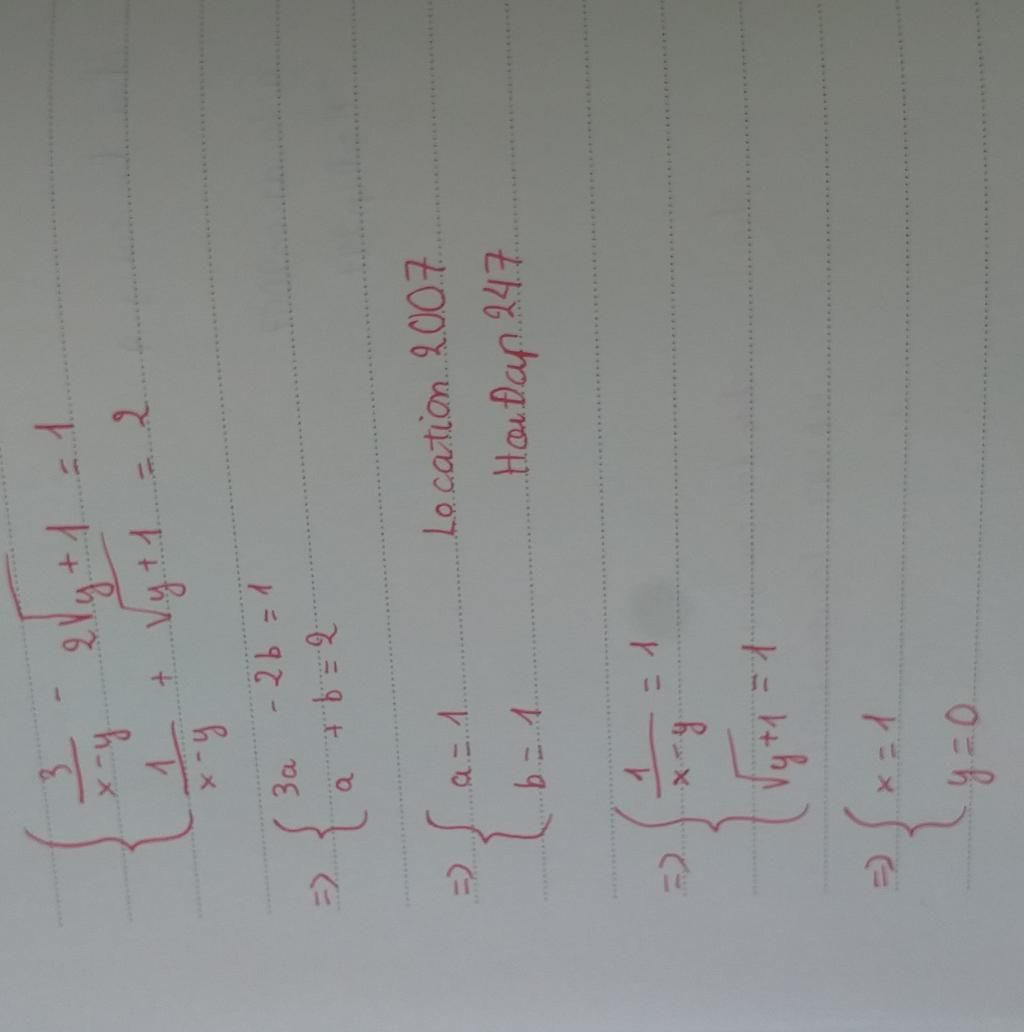 { 3/(x-y) - 2√(y+1) = 1
1/(x-y) + √(y+1) = 2
=> { 3a - 2b = 1
a + b = 2
=> { a = 1 Location 2007
b = 1 HoiDap 247
=> { 1/(x-y) = 1
√(y+1) = 1
=> { x = 1
y = 0